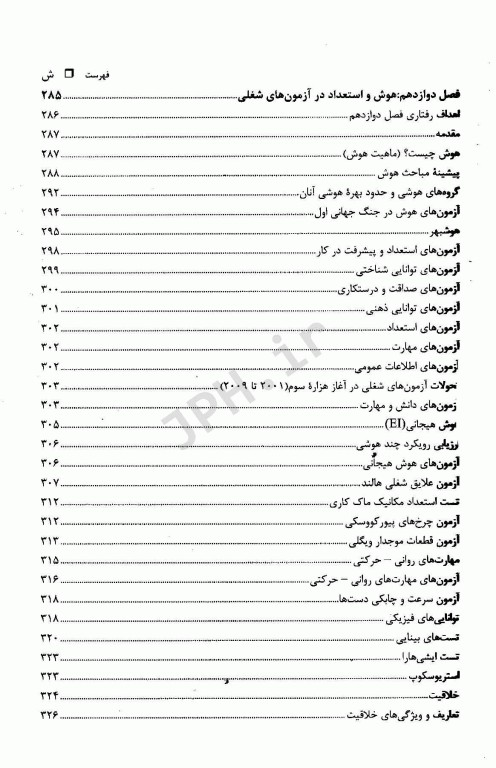 فهرست □ ش
فصل دوازدهم:هوش و استعداد در آزمون‌های شغلی ۲۸۵
اهداف رفتاری فصل دوازدهم ۲۸۶
مقدمه ۲۸۷
هوش چیست؟ (ماهیت هوش) ۲۸۷
پیشینهٔ مباحث هوش ۲۸۸
گروه‌های هوشی و حدود بهرهٔ هوشی آنان ۲۹۲
آزمون‌های هوش در جنگ جهانی اول ۲۹۴
هوشبهر ۲۹۵
آزمون‌های استعداد و پیشرفت در کار ۲۹۸
آزمون‌های توانایی شناختی ۲۹۹
آزمون‌های صداقت و درستکاری ۳۰۰
آزمون‌های توانایی ذهنی ۳۰۱
آزمون‌های استعداد ۳۰۲
آزمون‌های مهارت ۳۰۲
آزمون‌های اطلاعات عمومی ۳۰۲
تحولات آزمون‌های شغلی در آغاز هزارهٔ سوم(۲۰۰۱ تا ۲۰۰۹) ۳۰۳
زمون‌های دانش و مهارت ۳۰۳
هوش هیجانی(EI) ۳۰۵
رزیابی رویکرد چند هوشی ۳۰۶
آزمون‌های هوش هیجانی ۳۰۶
آزمون علایق شغلی هالند ۳۰۷
تست استعداد مکانیک ماک کاری ۳۱۲
آزمون چرخ‌های پیورکووسکی ۳۱۲
آزمون قطعات موجدار ویگلی ۳۱۳
مهارت‌های روانی – حرکتی ۳۱۵
آزمون‌های مهارت‌های روانی – حرکتی ۳۱۶
آزمون سرعت و چابکی دست‌ها ۳۱۸
توانایی‌های فیزیکی ۳۱۸
تست‌های بینایی ۳۲۰
تست ایشی‌هارا ۳۲۳
استریوسکوپ ۳۲۳
خلاقیت ۳۲۴
تعاریف و ویژگی‌های خلاقیت ۳۲۶
JPH.ir